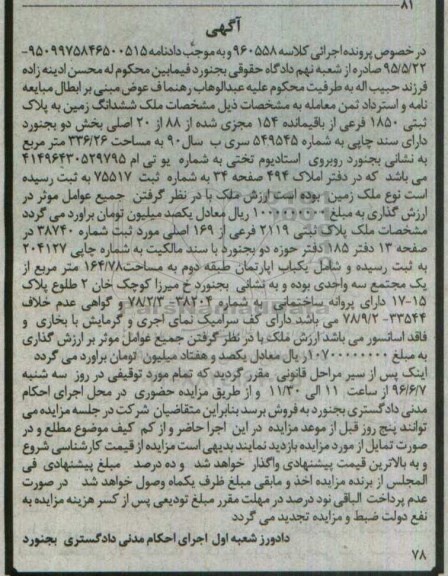 ۸۱
آگهی
در خصوص پرونده اجرائی کلاسه ۹۶۰۵۵۸ و به موجب دادنامه ۹۵۰۹۹۷۵۸۴۶۵۰۰۵۱۵-
۹۵/۵/۲۲ صادره از شعبه نهم دادگاه حقوقی بجنورد فیمابین محکوم له محسن آدینه زاده
فرزند حبیب اله به طرفیت محکوم علیه عبدالوهاب رهنما ف عوض مبنی بر ابطال مبایعه
نامه و استرداد ثمن معامله به مشخصات ذیل مشخصات ملک ششدانگ زمین به پلاک
ثبتی ۱۸۵۰ فرعی از باقیمانده ۱۵۴ مجزی شده از ۸۸ از ۲۰ اصلی بخش دو بجنورد
دارای سند چاپی به شماره ۵۴۹۵۴۵ سری ب سال ۹۰ به مساحت ۳۳۶/۲۶ متر مربع
به نشانی بجنورد روبروی استادیوم تختی به شماره یو تی ام ۴۱۴۹۶۴۳۰۵۲۹۷۹۵
می باشد که در دفتر املاک ۴۹۴ صفحه ۳۴ به شماره ثبت ۷۵۵۱۷ به ثبت رسیده
است نوع ملک زمین بوده است ارزش ملک با در نظر گرفتن جمیع عوامل موثر در
ارزش گذاری به مبلغ ۱۰۰۰۰۰۰۰۰۰ ریال معادل یکصد میلیون تومان براورد می گردد
مشخصات ملک پلاک ثبتی ۲۱۱۹ فرعی از ۱۶۹ اصلی مورد ثبت شماره ۳۸۷۴۰ در
صفحه ۱۳ دفتر ۱۸۵ دفتر حوزه دو بجنورد با سند مالکیت به شماره چاپی ۲۰۴۱۲۷
به ثبت رسیده و شامل یکباب اپارتمان طبقه دوم به مساحت ۱۶۴/۷۸ متر مربع از
یک مجتمع سه واحدی بوده و به نشانی بجنورد خ میرزا کوچک خان ۲ طلوع پلاک
۱۷-۱۵ دارای پروانه ساختمانی به شماره ۳۸۲۰۴-۷۸/۲/۳ و گواهی عدم خلاف
۳۳۵۴۴- ۷۸/۹/۲ می باشد دارای کف سرامیک نمای اجری و گرمایش با بخاری و
فاقد اسانسور می باشد ارزش ملک با در نظر گرفتن جمیع عوامل موثر بر ارزش گذاری
به مبلغ ۱۰۷۰۰۰۰۰۰۰۰ ریال معادل یکصد و هفتاد میلیون تومان براورد می گردد
اینک پس از سیر مراحل قانونی مقرر گردید که تمام مورد توقیفی در روز سه شنبه
۹۶/۶/۷ از ساعت ۱۱ الی ۱۱/۳۰ و از طریق مزایده حضوری در محل اجرای احکام
مدنی دادگستری بجنورد به فروش برسد بنابراین متقاضیان شرکت در جلسه مزایده می
توانند پنج روز قبل از موعد مزایده در این اجرا حاضر و از کم کیف موضوع مطلع و در
صورت تمایل از مورد مزایده بازدید نمایند بدیهی است مزایده از قیمت کارشناسی شروع
و به بالاترین قیمت پیشنهادی واگذار خواهد شد و ده درصد مبلغ پیشنهادی فی
المجلس از برنده مزایده اخذ و مابقی مبلغ ظرف یکماه وصول خواهد شد در صورت
عدم پرداخت الباقی نود درصد در مهلت مقرر مبلغ تودیعی پس از کسر هزینه مزایده به
نفع دولت ضبط و مزایده تجدید می گردد
دادورز شعبه اول اجرای احکام مدنی دادگستری بجنورد
۷۸